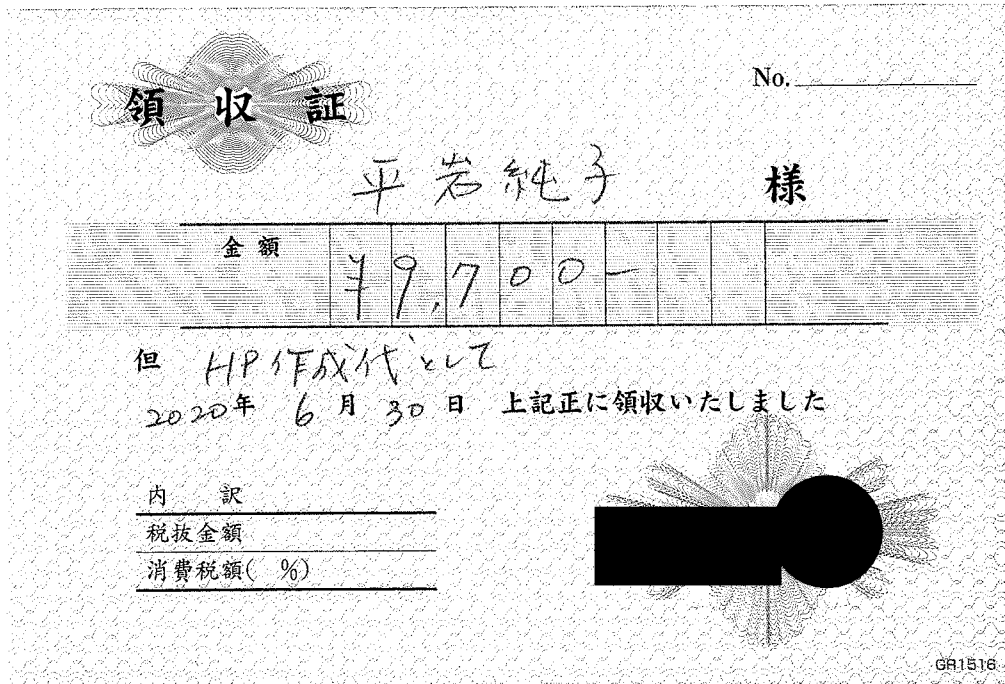 No.
領収証
平岩純子 様
金額 ¥9,700-
但 HP作成代として
2020年 6月 30日 上記正に領収いたしました
内 訳
税抜金額
消費税額( %)
GR1516